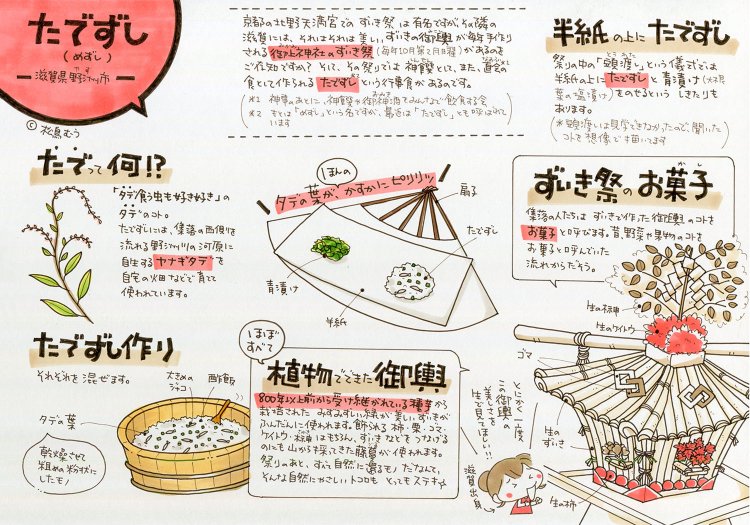 たでずし
(めずし)
滋賀県野洲市
© 松鳥むう
京都の北野天満宮でのずいき祭は有名ですが、その隣の
滋賀には、それはそれは美しいずいきの御輿が毎年手作り
される御上神社のずいき祭(毎年10月第2月曜)があるのを
ご存知ですか? そして、その祭りでは神饌として、また、直会の
食として作られるたでずしという行事食があるのです。
*1 神事のあとに、神饌や御神酒をみんなで飲食する会
*2 もとは「めずし」という名ですが、最近は「たでずし」とも呼ばれて
います
半紙の上にたでずし
祭りの中の「頭渡し」という儀式では
半紙の上にたでずしと青漬け
葉の塩漬け)をのせるというしきたりも
あります。
(*頭渡しは見学できなかったので、聞いた
コトを想像で描いてます
たでって何!?
「タデ食う虫も好き好き」の
タデのコト。
たでずしには、集落の西側を
流れる野洲川の河原に
自生するヤナギタデを
自宅の畑などで育て
使われています。
ほんの
タデの葉が、かすかにピリリッ
扇子
たでずし
青漬け
半紙
ずいき祭のお菓子
かし
集落の人たちは、ずいきで作った御輿のコトを
お菓子と呼びます。昔、野菜や果物のコトを
お菓子と呼んでいた
流れからだそう。
生の榊
生のケイトウ
ゴマ
生の
ずいき
生の柿
たでずし作り
それぞれを混ぜます。
大きめの
ジャコ
酢飯
タデの葉
乾燥させて
粗めの粉状に
したモノ
ほぼ
すべて
植物でできた御輿
800年以上前から受け継がれている種芋から
栽培された みずみずしい緑が美しいずいきが
ふんだんに使われます。飾られる柿・栗・ゴマ・
ケイトウ・榊はもちろん、ずいきなどをつなげる
のにも山から採ってきた藤蔓が使われます。
祭りのあと、すべて自然に還るモノだなんて、
そんな自然にやさしいトコロもとってもステキ
とにかく一度
この御輿の
美しさを
生で見てほしい!!
滋賀出身